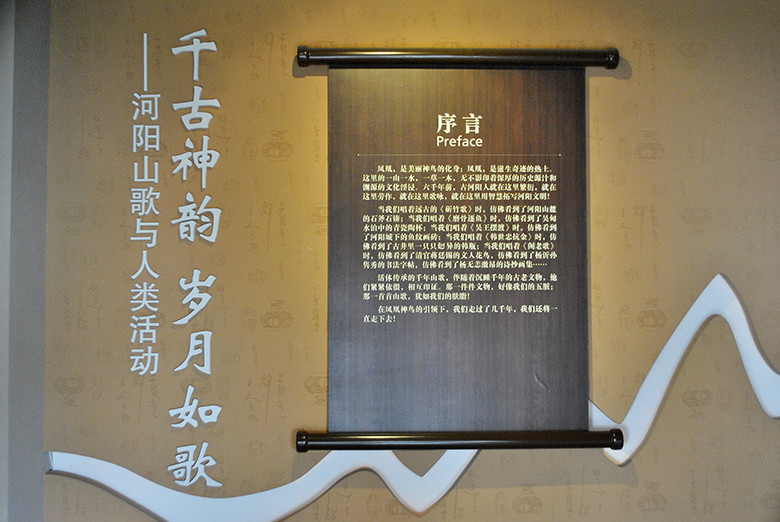 千古神韵 岁月如歌
——河阳山歌与人类活动
序言
Preface
凤凰，是美丽神鸟的化身；凤凰，是滋生奇迹的热土。
这里的一山一水，一草一木，无不影印着深厚的历史源注和
渊源的文化浸浸。六千年前，古河阳人就在这里繁衍，就在
这里劳作，就在这里歌咏，就在这里用智慧拓写河阳文明！
当我们唱着远古的《斫竹歌》时，仿佛看到了河阳山麓
的石斧石锛；当我们唱着《磨骨逐鱼》时，仿佛看到了吴甸
水泊中的青瓷陶杯；当我们唱着《吴王摆渡》时，仿佛看到
了河阳城下的鱼纹画砖；当我们唱着《韩世忠抗金》时，仿
佛看到了古井里一只只如异的韩瓶；当我们唱着《阁老歌》
时，仿佛看到了清官蒋廷锡的文人花鸟，仿佛看到了杨沂孙
隽秀的书法字帖，仿佛看到了杨无恙激昂的诗抄画集……
活体传承的千年山歌，伴随着沉睡千年的古老文物，他
们紧紧依偎，相互印证。那一件件文物，好像我们的五脏；
那一首首山歌，犹如我们的肤脂！
在凤凰神鸟的引领下，我们走过了几千年，我们还将一
直走下去！